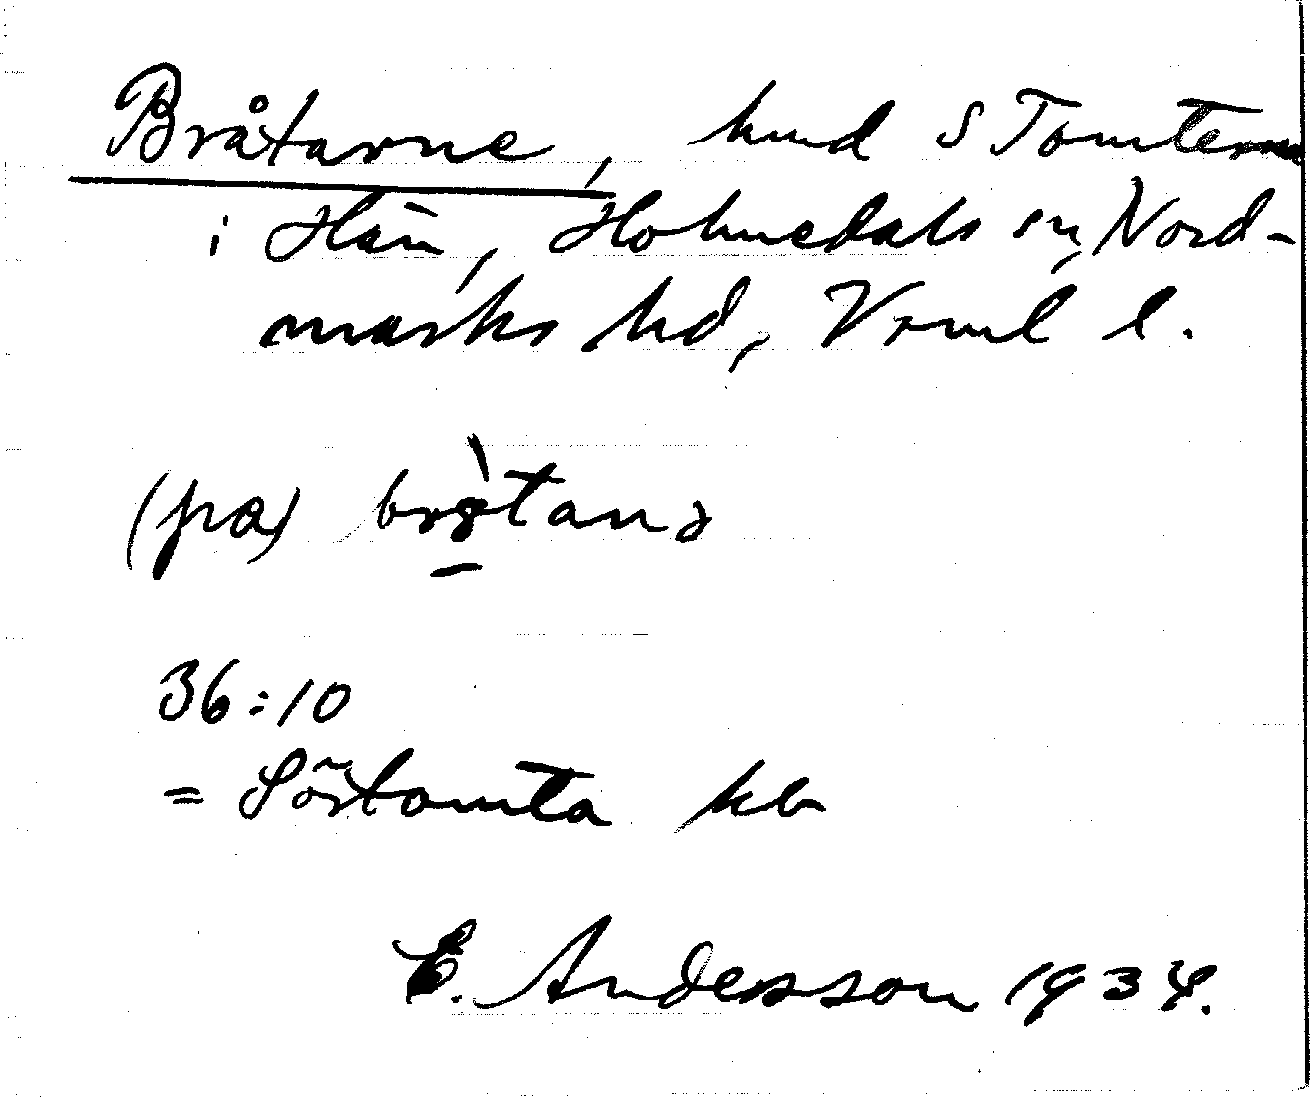 Bråtarne, hmd S Tomterna
i Hån, Holmedals sn, Nord-
marks hd, Vrml l.
(på) brǫ̀tanə
36:10
= Sörtomta kb
E. Andersson 1934.